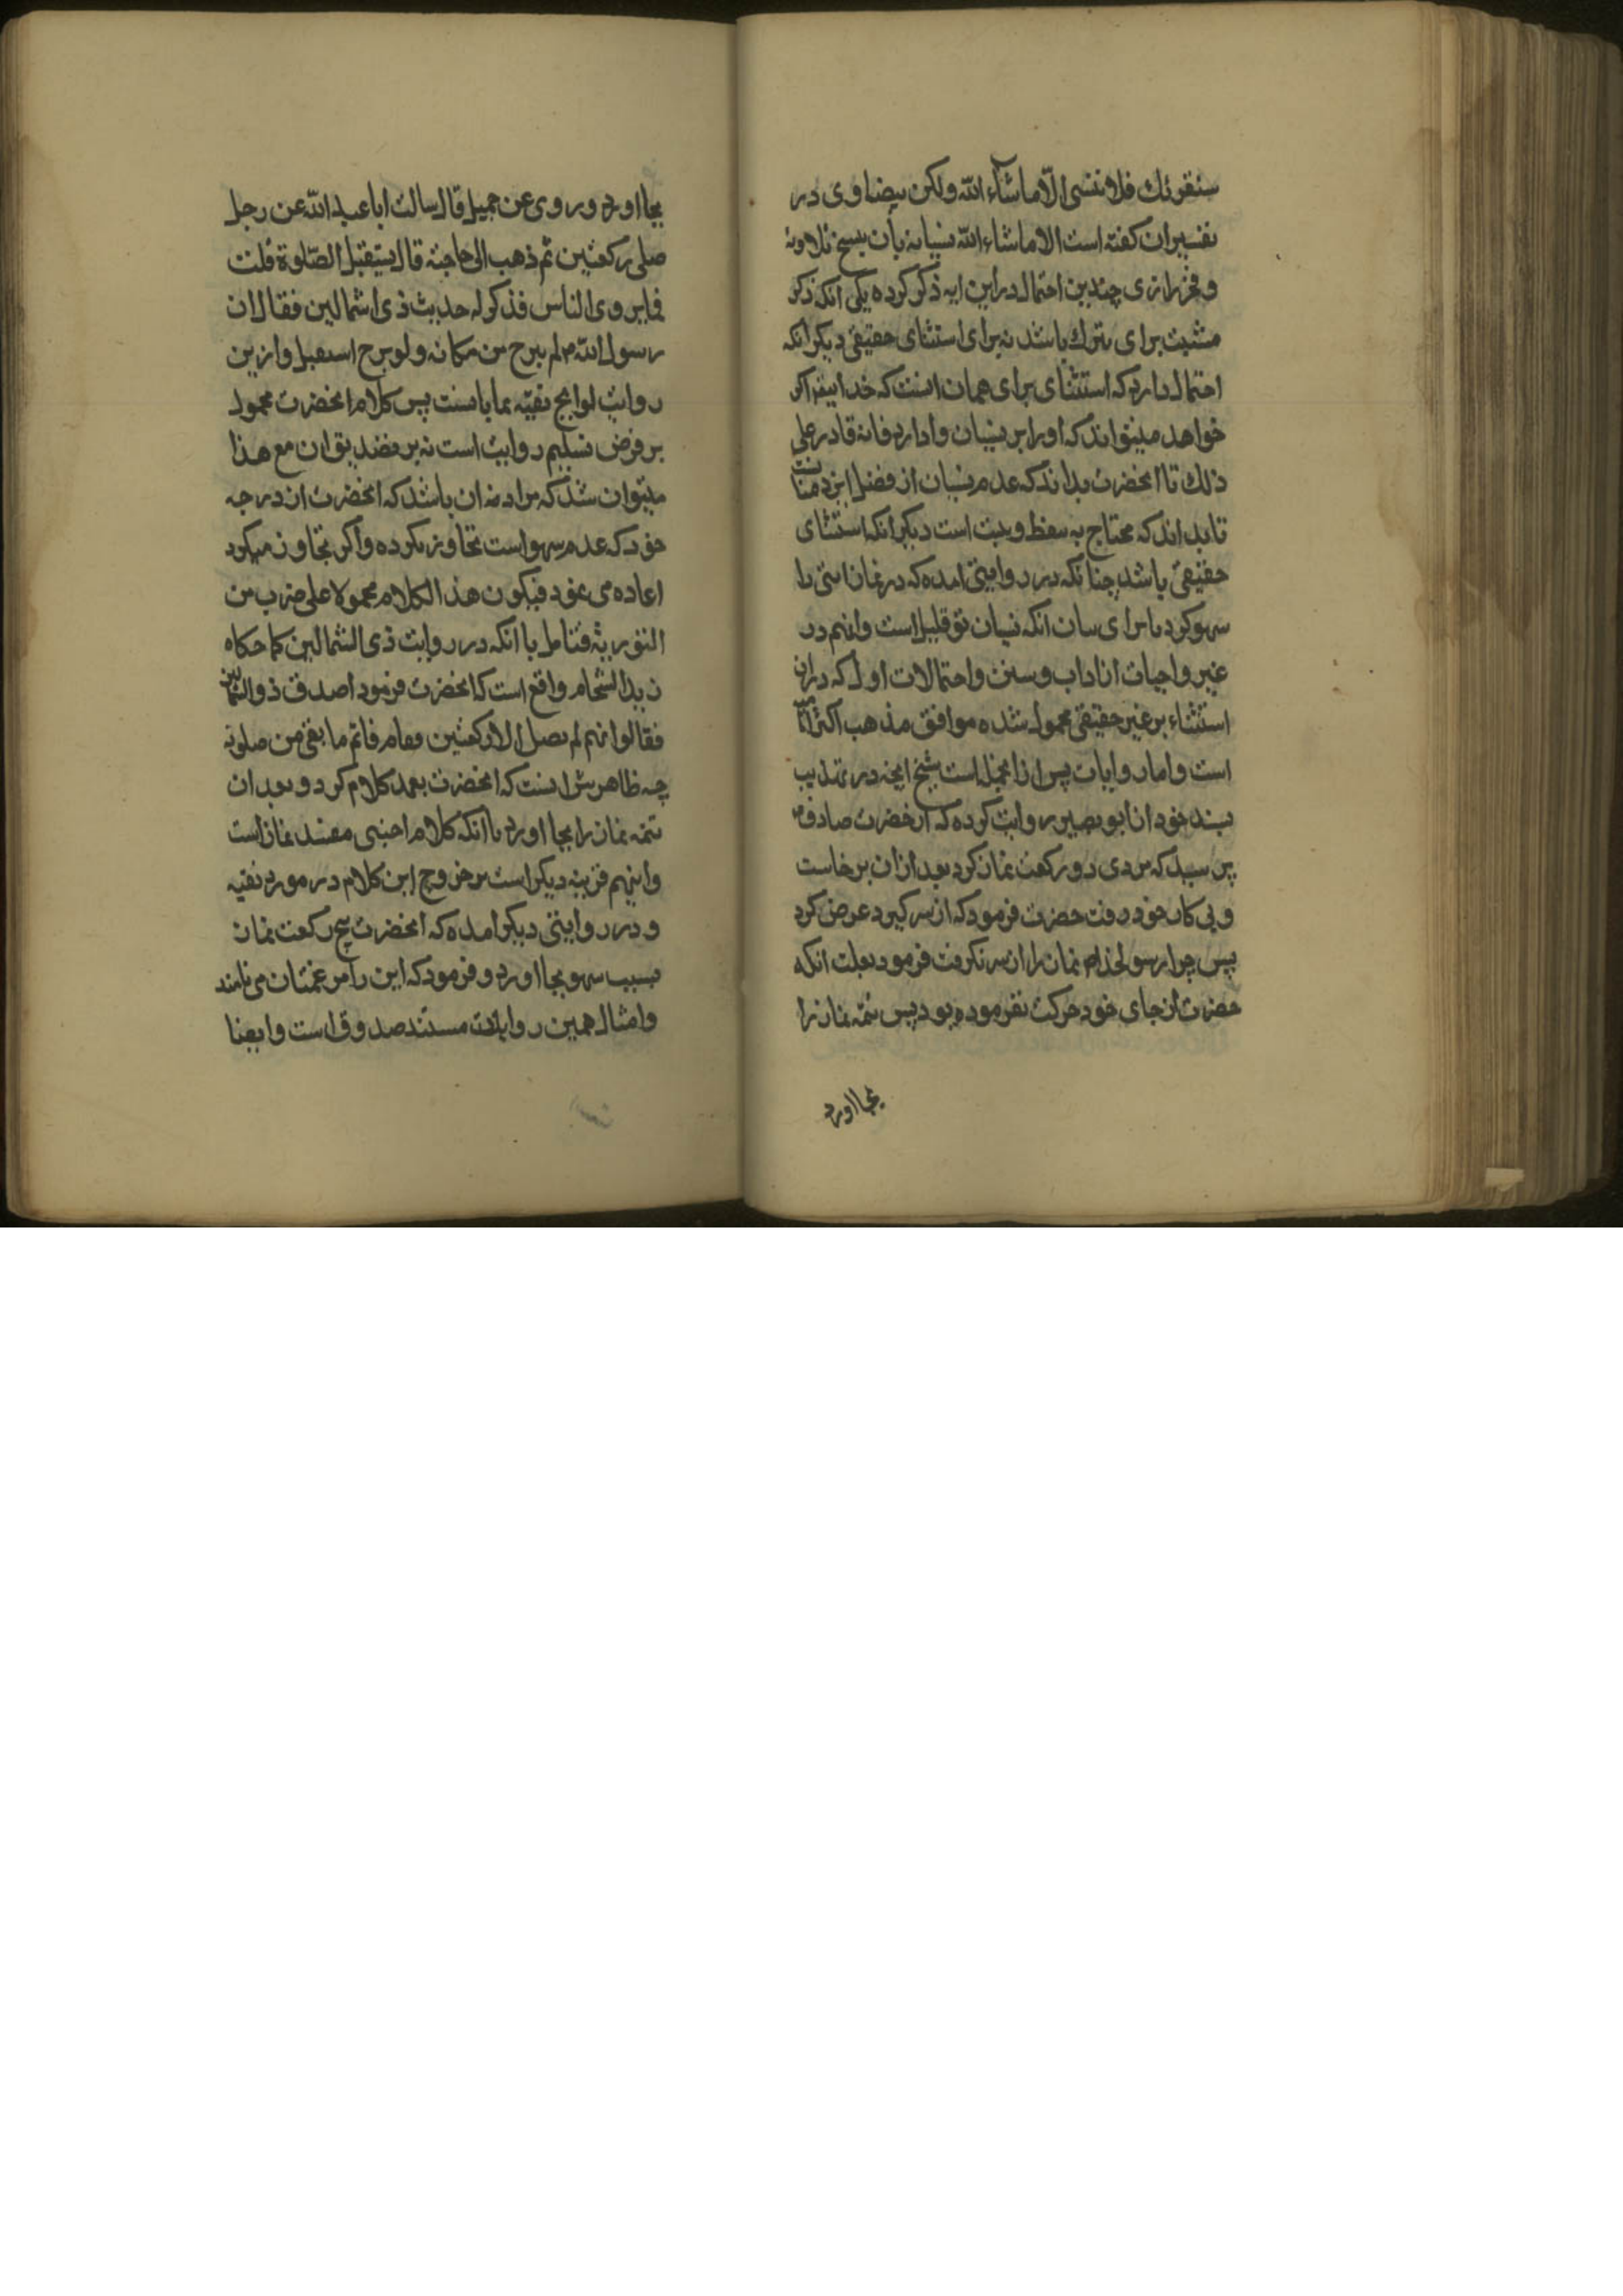 سنقرئك فلا تنسی الّا ماشآء الله ولکن بیضاوی در
تفسیران کفته است الا ماشاء الله نسیانه بأن ینسخ تلاوته
و فخررازی چندین احتمال دراین ایه ذکر کرده یکی انکه ذکر
مشیت برای تبرك باشد نه برای استثنای حقیقی دیکر انکه
احتمال دارد که استثنای برای همان است که خدا اکر
خواهد میتواند که اورا بر نسیان وادارد فانه قادر علی
ذلك تا انحضرت بداند که عدم نسیان از فضل
تا بداند که محتاج به است دیکر انکه استثنای
حقیقی باشد چنانکه در روایتی امده که در نماز ایتی را
سهو کرد یا برای بیان انکه نسیان تو قلیل است وانهم در
غیر واجبات از اداب و سنن واحتمالات اول که دران
استثناء بر غیر حقیقی محمول شده موافق مذهب اکثر
است واما روایات پس از انجمله است شیخ انچه در تهذیب
بسند خود از ابو بصیر روایت کرده که از حضرت صادق
پرسید که مردی دو رکعت نماز کرد بعد ازان برخاست
و پی کار خود رفت حضرت فرمود که از سر کیرد عرض کرد
پس چرا رسولخدا نماز را از سر نکرفت فرمود بعلت انکه
حضرت از جای خود حرکت نفرموده بود پس تتمه نماز را
بجا اورد
بجا اورد و روی عن جمیل قال سالت ابا عبد الله عن رجل
صلی رکعتین ثم ذهب الی حاجته قال یستقبل الصّلوة قلت
فایروی الناس فذکر له حدیث ذی اشمالین فقال ان
رسول الله لم یبرح من مکانه ولو برح استقبل وازین
روایت لوایح تقیّه نمایانست پس کلام انحضرت محمول
بر فرض تسلیم روایت است نه بر تصدیق ان مع هذا
میتوان شد که مراد ان باشد که انحضرت از درجه
خود که عدم سهو است تجاوز نکرده واکر تجاوز میکرد
اعاده می نمود فیکون هذ الکلام محمولا علی ضرب من
التوریة فتامل با انکه در روایت ذی الشمالین کما حکاه
زید الشحام واقع است که انحضرت فرمود اصدق ذوالشمالین
فقالوا نهم لم یصل الا رکعتین فقام فاتم ما بقی من صلوته
چه ظاهرش انست که انحضرت بعمد کلام کرد و بعد ان
تتمه نماز را بجا اورد با انکه کلام اجنبی مفسد نماز است
واینهم قرینه دیکر است بر خروج این کلام در مورد تقیه
و در روایتی دیکر امده که انحضرت پنج رکعت نماز
بسبب سهو بجا اورد و فرمود که این را مرغمتان می نامند
وامثال همین روایات مستند صدوق است وایضا